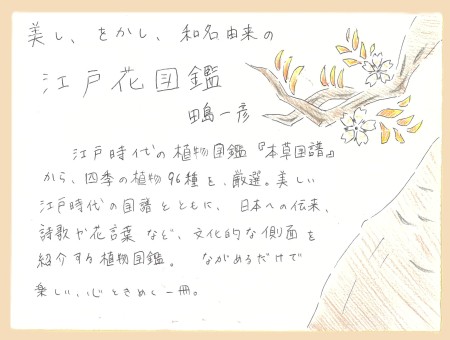 美し、をかし、和名由来の
江戸花図鑑
田島一彦
江戸時代の植物図鑑『本草図譜』
から、四季の植物96種を、厳選。美しい
江戸時代の図譜とともに、日本への伝来、
詩歌や花言葉など、文化的な側面を
紹介する植物図鑑。ながめるだけで
楽しい、心ときめく一冊。